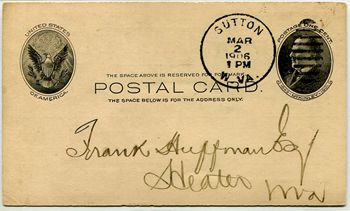 SUTTON
MAR
2
1906
1 PM
W. VA.
UNITED STATES
OF AMERICA.
POSTAGE ONE CENT
THE SPACE ABOVE IS RESERVED FOR POSTMARK.
POSTAL CARD.
THE SPACE BELOW IS FOR THE ADDRESS ONLY.
Frank Huffman Esq
Heater
W Va